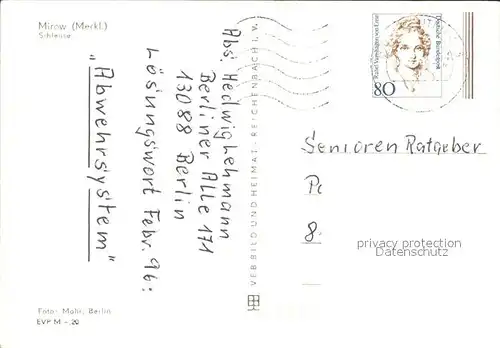 Mirow (Merkl.)
Schleuse
Abs. Hedwig Lehmann
Berliner Alle 171
13088 Berlin
Lösungswort Febr. 96:
"Abwehrsystem"
Foto: Mohr, Berlin
EVP M –.20
VEB BILD UND HEIMAT · REICHENBACH I. V.
Rahel Varnhagen von Ense
Deutsche Bundespost
80
Senioren Ratgeber
8.
privacy protection
oldthing.com